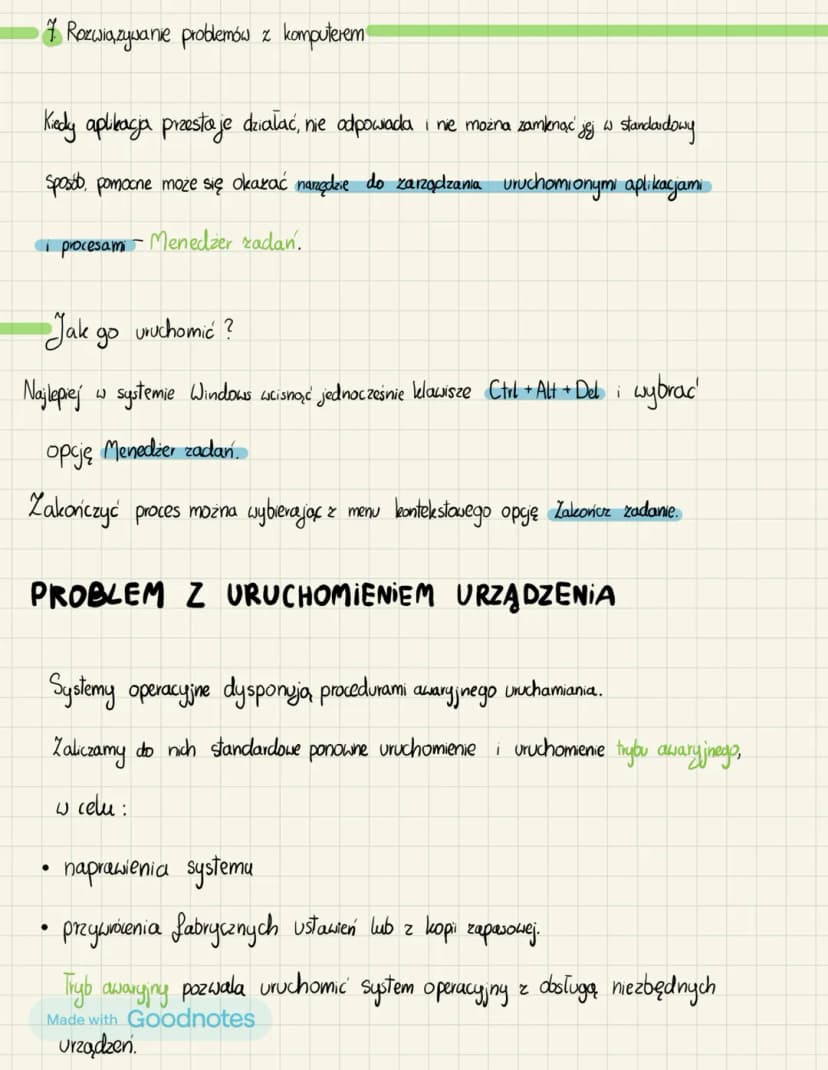 7. Rozwiązywanie problemów z komputerem
Kiedy aplikacja przestaje działać, nie odpowiada i nie można zamknąć jej w standardowy
sposób, pomocne może się okazać narzędzie do zarządzania uruchomionymi aplikacjami
i procesami - Menedżer zadań.
Jak go uruchomić?
Najlepiej w systemie Windows wcisnąć jednocześnie klawisze Ctrl + Alt + Del i wybrać
opcję Menedżer zadań.
Zakończyć proces można wybierając z menu kontekstowego opcję Zakończ zadanie.
PROBLEM Z URUCHOMIENIEM URZĄDZENIA
Systemy operacyjne dysponują procedurami awaryjnego uruchamiania.
Zaliczamy do nich standardowe ponowne uruchomienie i uruchomienie trybu awaryjnego,
w celu:
• naprawienia systemu
• przywrócenia fabrycznych ustawień lub z kopii zapasowej.
Tryb awaryjny pozwala uruchomić system operacyjny z obsługą niezbędnych
Made with Goodnotes
urządzeń.